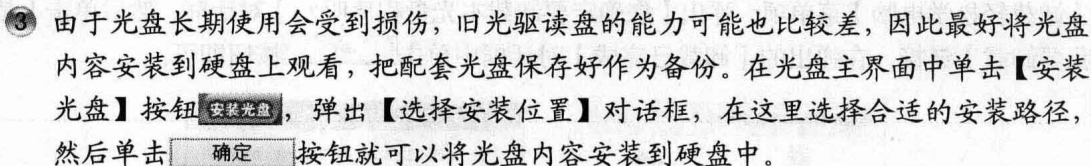 ③ 由于光盘长期使用会受到损伤，旧光驱读盘的能力可能也比较差，因此最好将光盘
内容安装到硬盘上观看，把配套光盘保存好作为备份。在光盘主界面中单击【安装
光盘】按钮 安装光盘，弹出【选择安装位置】对话框，在这里选择合适的安装路径，
然后单击 确定 按钮就可以将光盘内容安装到硬盘中。